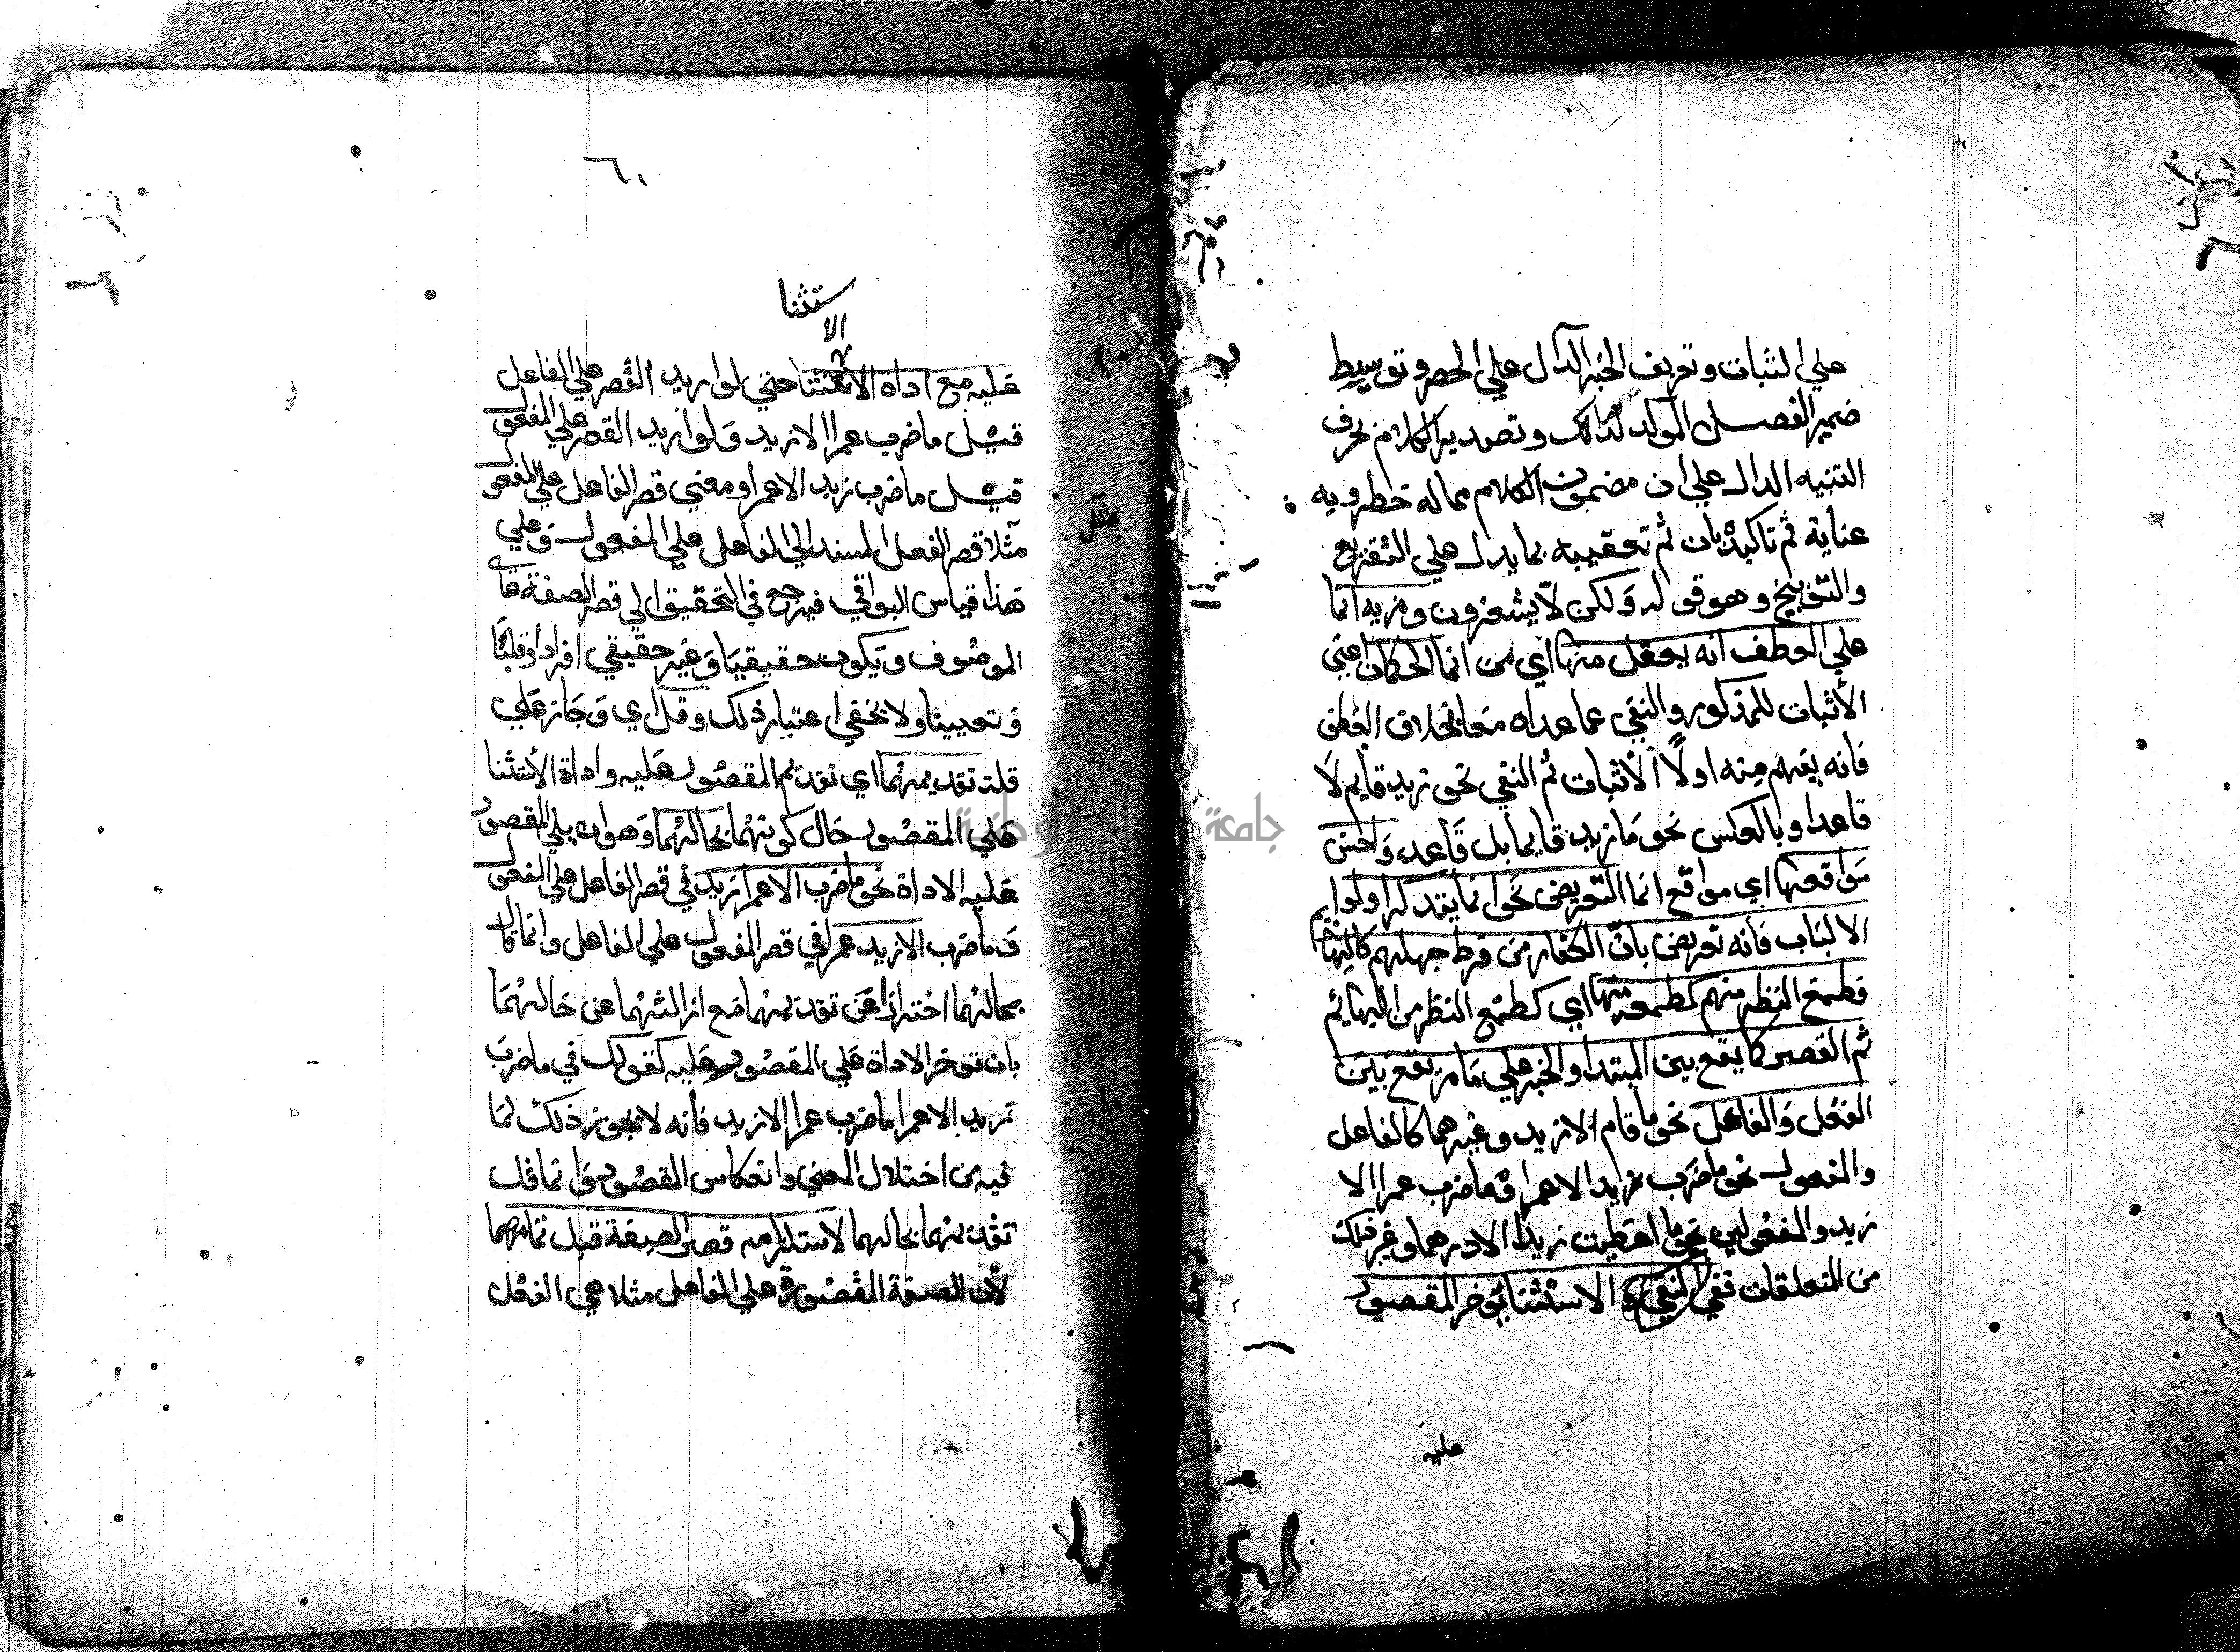 علي الثبات وتعريف الخبر الدال علي الحصر وتوسيط
ضمير الفصل المولد لذالك وتصدير الكلام بحرف
التنبيه الدال علي ان مضمون الكلام مما له خطر وبه
عناية ثم تاكيده بان ثم تعقيبه بما يدل علي التقريع
والتوبيخ وهو قوله ولكن لا يشعرون ومزيه انما
علي العطف انه يعقل منها اي من انما الحكمان اعني
الأثبات للمذكور والنفي عما عداه معا بخلاف العطف
فانه يفهم منه اولاً الأثبات ثم النفي نحو زيد قايم لا
قاعدا وبالعكس نحو ما زيد قايما بل قاعد واحسن
مواقعها اي مواقع انما التعريض نحو انما يتذكر اولوا
الالباب فانه تعريض بان الكفار من فرط جهلهم كالبهايم
فطمع النظر منهم كطمعه منها اي كطمع النظر من البهايم
ثم القصر كما يقع بين المبتدا والخبر علي ما مر يقع بين
الفعل والفاعل نحو ما قام الا زيد وغيرهما كالفاعل
والمفعول نحو ما ضرب زيد الا عمرا وما ضرب عمرا الا
زيد والمفعولين نحو ما اعطيت زيدا الا درهما وغير ذلك
من المتعلقات ففي الاستثنا يوخر المقصور
عليه
٦٠
ستثنا
الا
عليه مع اداة الاستثنا حتي لو اريد القصر علي الفاعل
قيل ما ضرب عمرا الا زيد ولو اريد القصر علي المفعول
قيل ما ضرب زيد الا عمرا ومعني قصر الفاعل علي المفعول
مثلا قصر الفعل المسند الي الفاعل علي المفعول وعلي
هذا قياس البواقي فيرجع في التحقيق الي قصر الصفة علي
الموصوف ويكون حقيقيا وغير حقيقي افرادا وقلبا
وتعيينا ولا يخفي اعتبار ذلك وقل اي وجاز علي
قلة تقديمهما اي تقديم المقصور عليه واداة الأستثنا
علي المقصور حال كونهما بحالهما وهو ان يلي المقصور
عليه الاداة نحو ما ضرب الا عمرا زيد في قصر الفاعل علي المفعول
وما ضرب الا زيد عمرا في قصر المفعول علي الفاعل وانما قال
بحالهما احترازا عن تقديمهما مع ازالتهما عن حالهما
بان توخر الاداة علي المقصور عليه كقولك في ما ضرب
زيد الا عمرا ما ضرب عمرا الا زيد فأنه لا يجوز ذلك لما
فيه من اختلال المعني وانعكاس المقصود وانما قل
تقديمهما بحالهما لاستلزامه قصر الصفة قبل تمامها
لأن الصفة المقصورة علي الفاعل مثلا هي الفعل